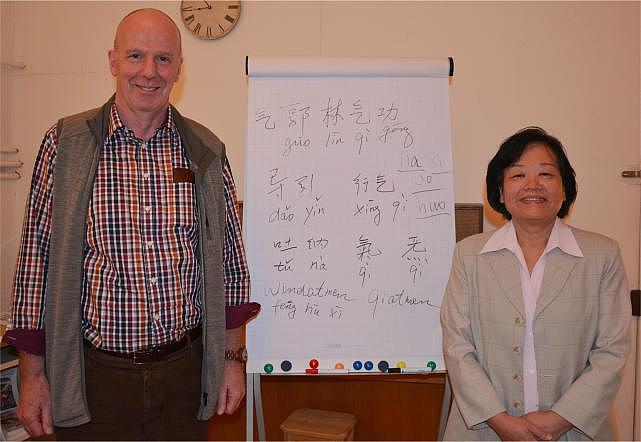 气 郭 林 气 功
guō lín qì gōng
导 引 行 气
dǎo yǐn xíng qì
吐 纳 氣 炁
tǔ nà qì qì
Windatmen Qiatmen
fēng hū xī